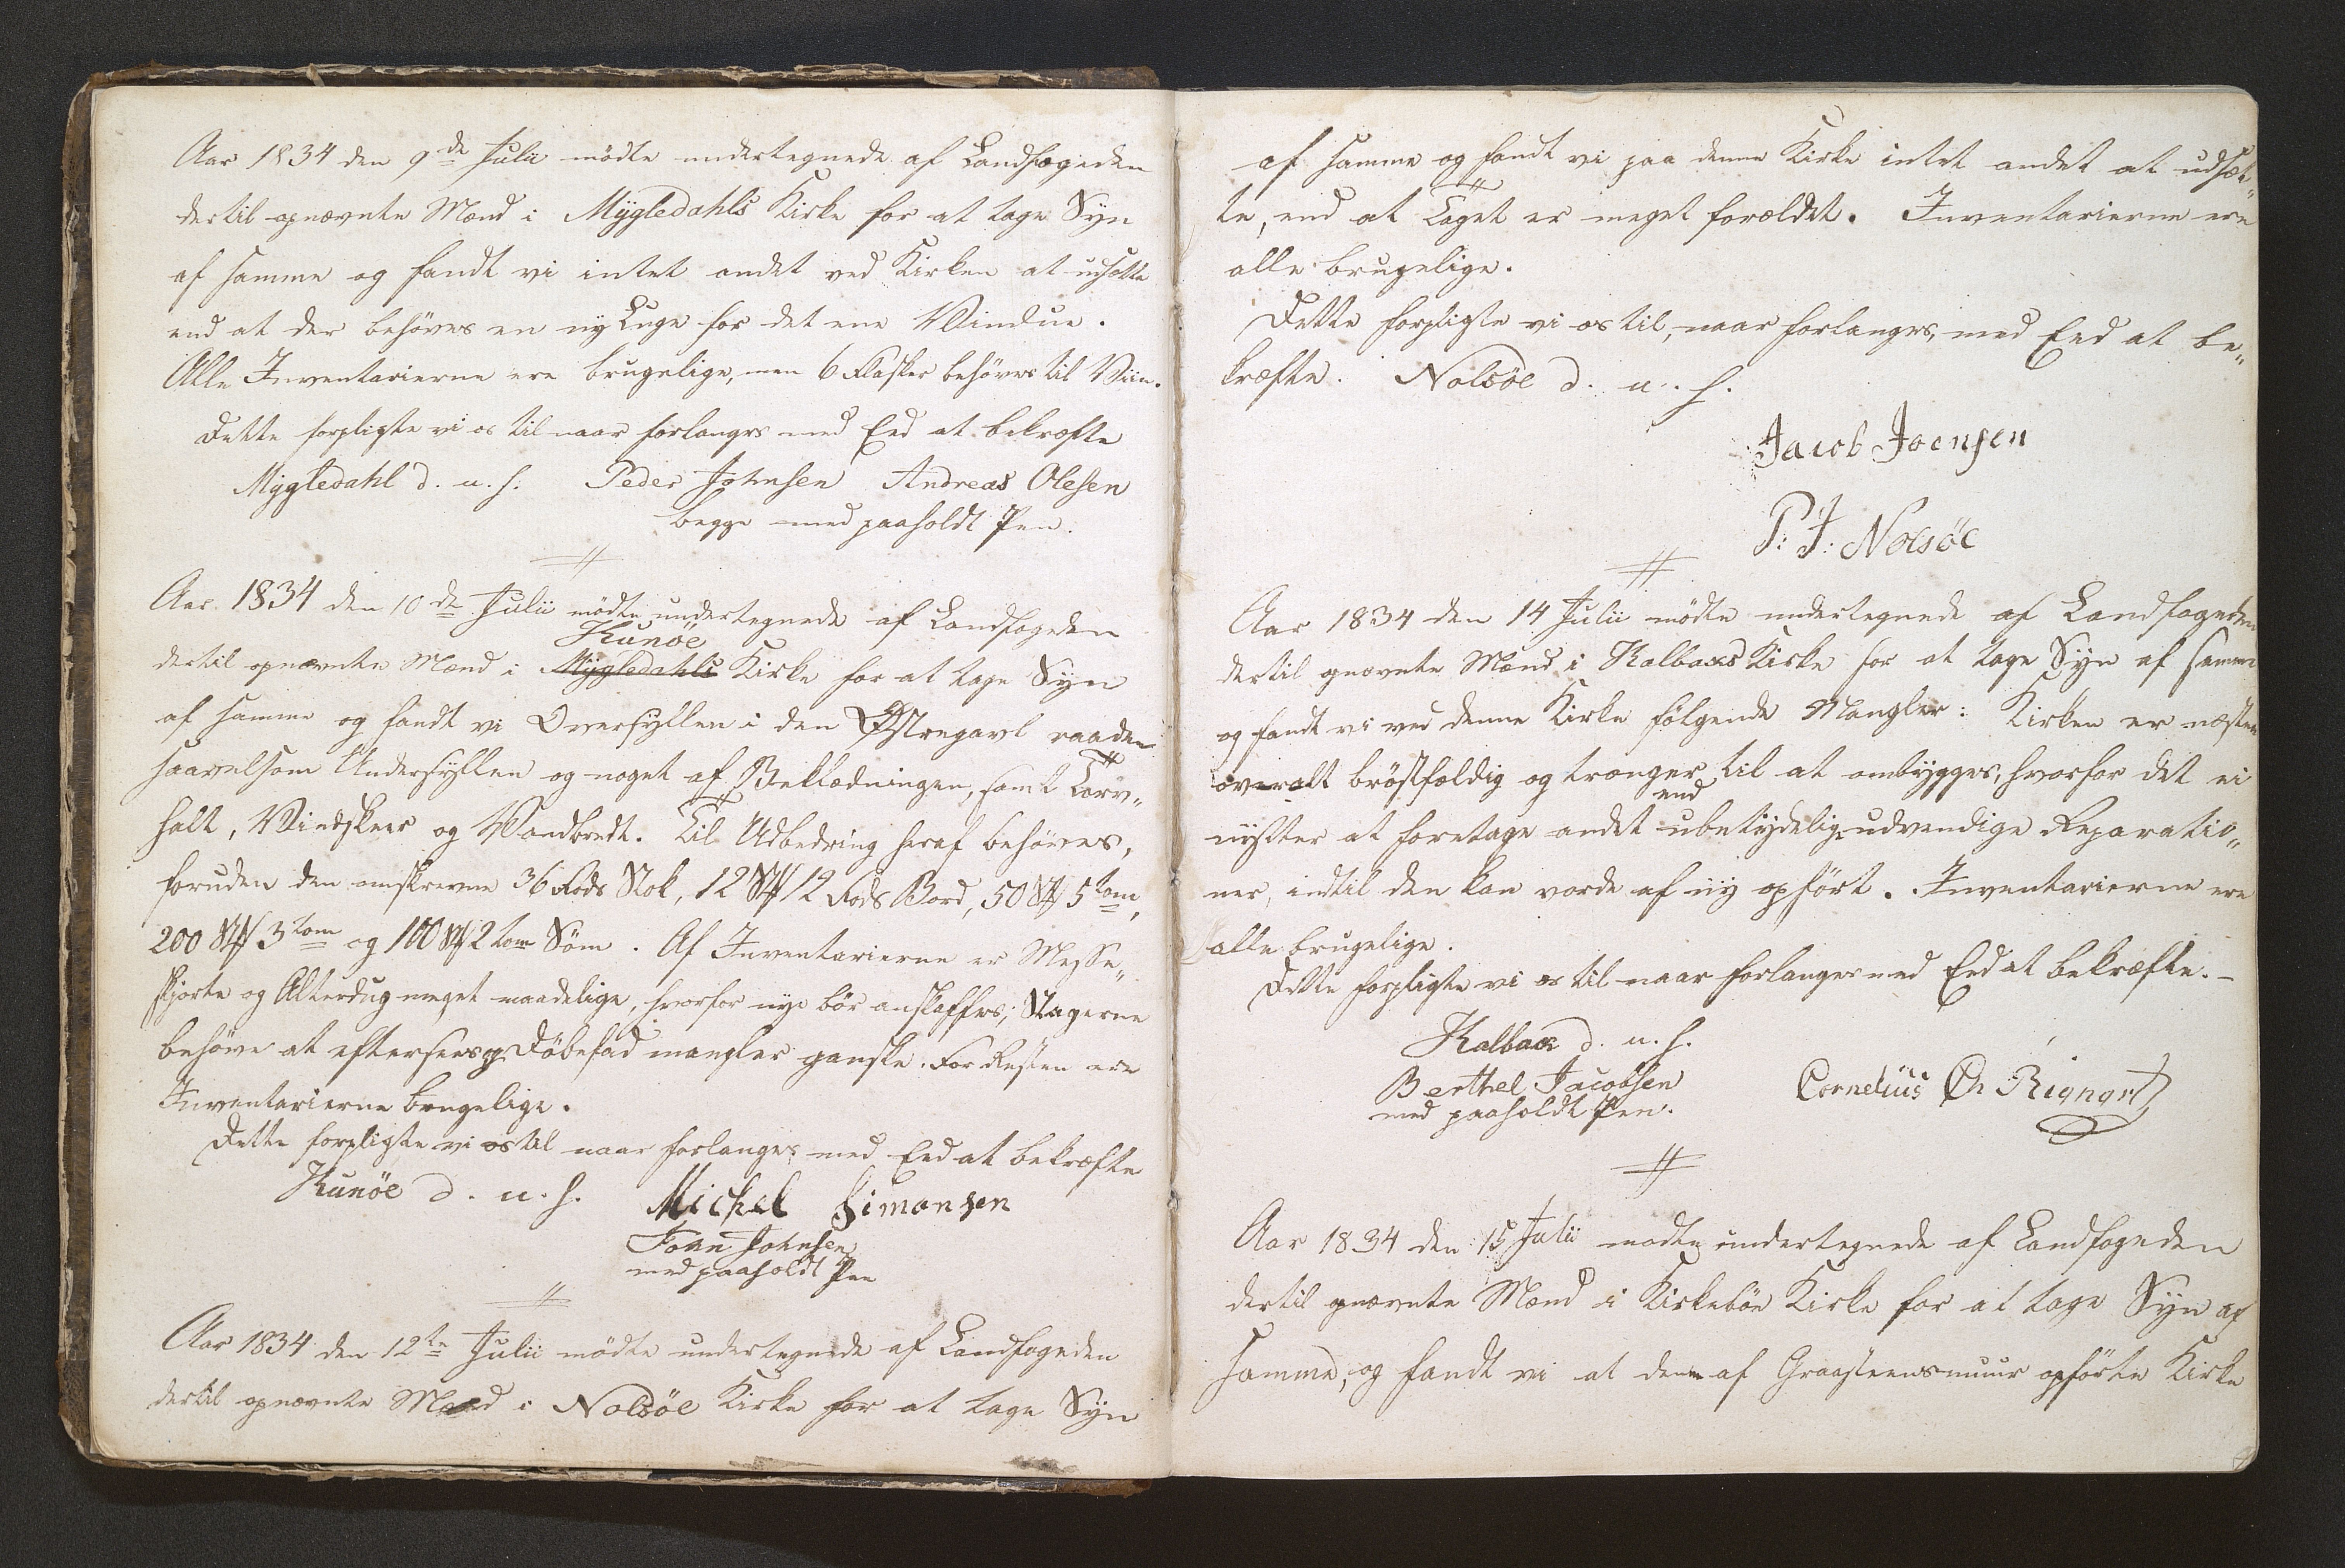 Aar 1834 den 9de Julii mödte undertegnede af Landfogeden
dertil opnævnte Mænd i Mygledahls Kirke for at tage Syn
af samme og fandt vi intet andet ved Kirken at udsætte
end at der behöves en ny Luge for det ene Vindue.
Alle Inventarierne ere brugelige, men 6 Flasker behöves til Viin.
Dette forpligte vi os til naar forlanges med Eed at bekræfte
Mygledahl d. u. s. Peder Johnsen Andreas Olesen
begge med paaholdt Pen.
Aar 1834 den 10de Julii mödte undertegnede af Landfogeden
Kunöe
dertil opnævnte Mænd i Mygledahls Kirke for at tage Syn
af samme og fandt vi Oversyllen i den Østregavl raaden
saavelsom Undersyllen og noget af Beklædningen, samt Törv„
halt, Vindskeer og Vandbredt. Til Udbedring heraf behöves,
foruden den omskrevne 36 Fods Stok, 12 Stk 12 Fods Bord, 50 Stk 5 tom,
200 Stk 3 tom og 100 Stk 2 tom Söm. Af Inventarierne er Messe„
skjorte og Alterdug meget maadelige, hvorfor nye bör anskaffes; Stagerne
behöve at eftersees og Döbefad mangler ganske. For Resten ere
Inventarierne brugelige.
Dette forpligte vi os til naar forlanges med Eed at bekræfte
Kunöe d. u. s. Michel Simonsen
John Johnsen
med paaholdt Pen
Aar 1834 den 12te Julii mödte undertegnede af Landfogeden
dertil opnævnte Mænd i Nolsöe Kirke for at tage Syn
af samme og fandt vi paa denne Kirke intet andet at udsæt„
te, end at Taget er meget forældet. Inventarierne ere
alle brugelige.
Dette forpligte vi os til, naar forlanges, med Eed at be„
kræfte. Nolsöe d. u. s.
Jacob Joensen
P: J: Nolsöe
Aar 1834 den 14 Julii mödte undertegnede af Landfogeden
dertil opnævnte Mænd i Kalbaks Kirke for at tage Syn af samme
og fandt vi ved denne Kirke fölgende Mangler: Kirken er næsten
overalt bröstfældig og trænger til at ombygges, hvorfor det ei
end
nytter at foretage andet ubetydelige udvendige Reparatio„
ner, indtil den kan vorde af ny opfört. Inventarierne ere
alle brugelige.
Dette forpligte vi os til naar forlanges med Eed at bekræfte.–
Kalbak d. u. s.
Berthel Jacobsen Cornelius
med paaholdt Pen.
Aar 1834 den 15 Julii mödte undertegnede af Landfogeden
dertil opnævnte Mænd i Kirkeböe Kirke for at tage Syn af
samme, og fandt vi at denne af Graasteensmuur opförte Kirke